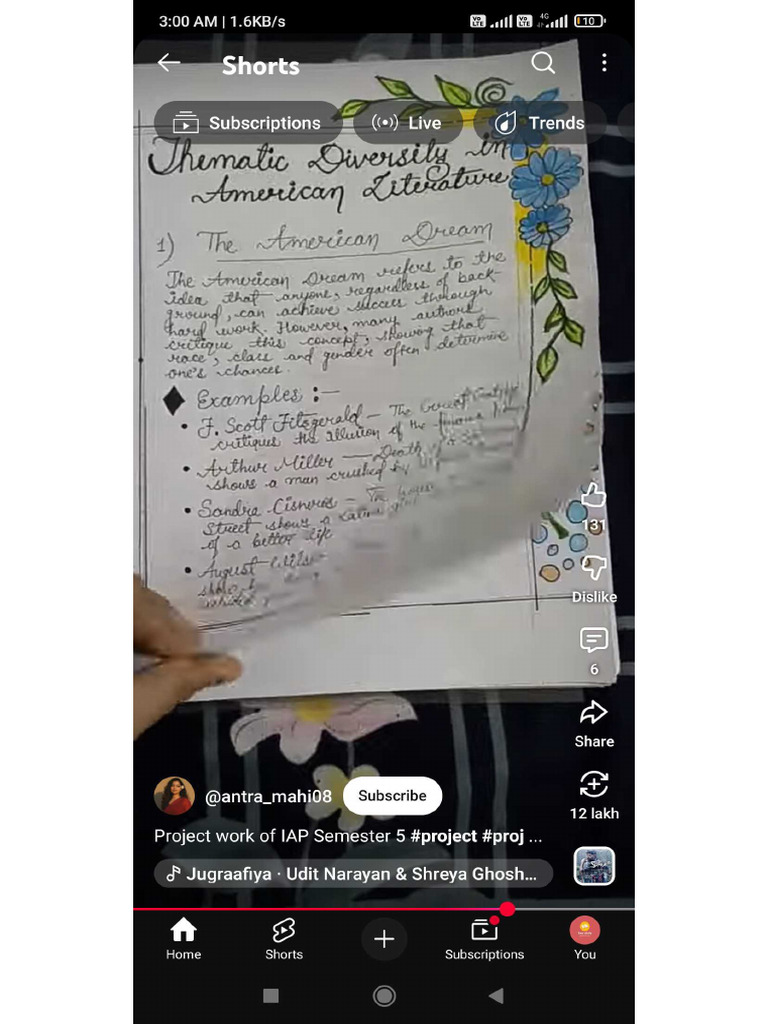 3:00 AM | 1.6KB/s
Vo LTE Vo LTE 4G 10
Shorts
Subscriptions Live Trends
Thematic Diversity in
American Literature
1) The American Dream
The American Dream refers to the
idea that anyone, regardless of back-
ground, can achieve success through
hard work. However, many authors
critique this concept, showing that
race, class and gender often determine
one's chances.
Examples :-
• F. Scott Fitzgerald — The Great
critiques the illusion of the
• Arthur Miller — Death
shows a man crushed by
• Sandra Cisneros — The
Street shows a
of a better life
• August
131
Dislike
6
Share
12 lakh
@antra_mahi08 Subscribe
Project work of IAP Semester 5 #project #proj ...
Jugraafiya · Udit Narayan & Shreya Ghosh...
Home Shorts Subscriptions You